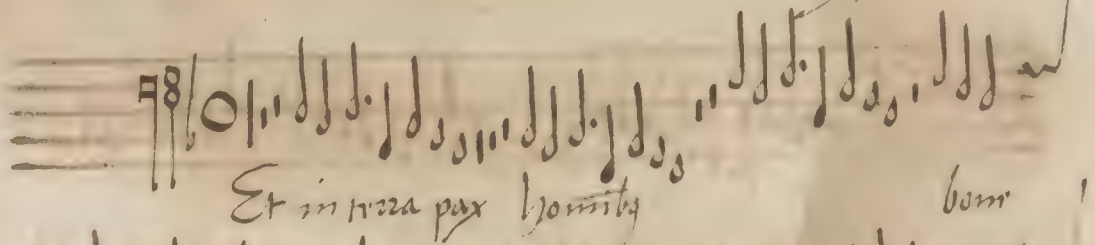 Et in terra pax homibꝫ bone